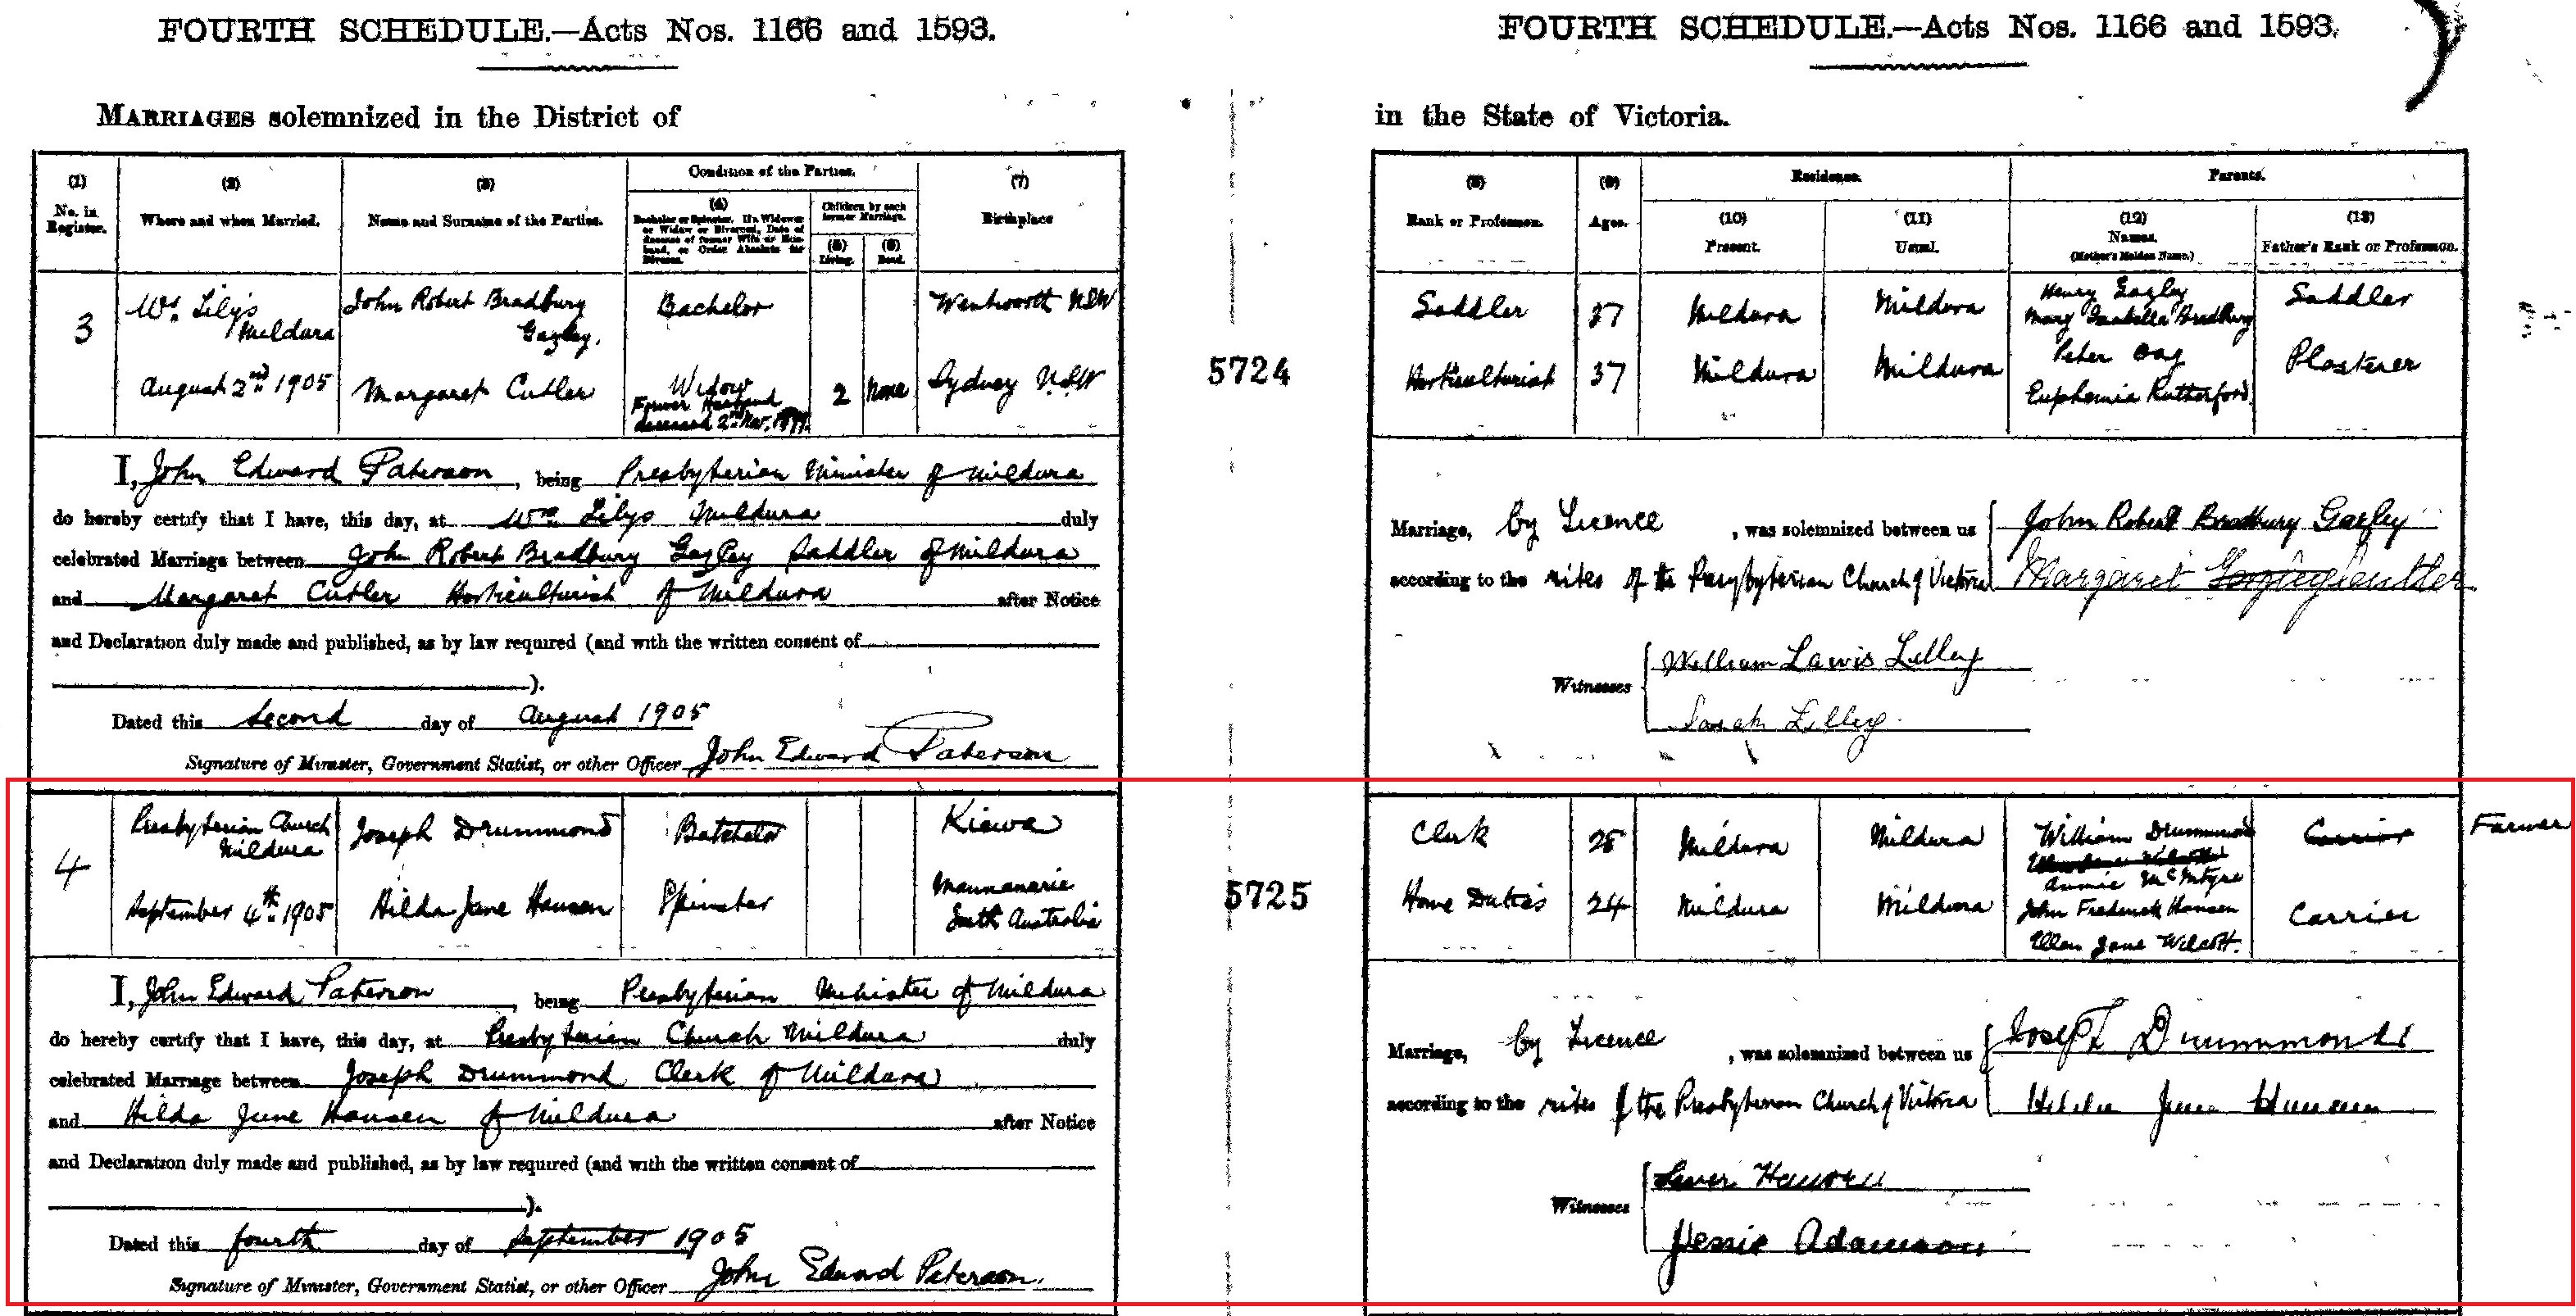 FOURTH SCHEDULE.—Acts Nos. 1166 and 1593.
MARRIAGES solemnized in the District of
(1)
No. in Register.
(2)
Where and when Married.
(3)
Name and Surname of the Parties.
Condition of the Parties.
(4)
Bachelor or Spinster. If a Widower
or Widow or Divorced, Date of
decease of former Wife or Hus-
band, or Order Absolute for
Divorce.
Children by each
former Marriage.
(5)
Living.
(6)
Dead.
(7)
Birthplace
3
Wm Lilys
Mildura
August 2nd 1905
John Robert Bradbury
Gazley.
Margaret Cutler
Bachelor
Widow
Former Husband
deceased 2nd Nov.
2
None
Wentworth NSW
Sydney NSW
I, John Edward Paterson, being Presbyterian Minister of Mildura
do hereby certify that I have, this day, at Wm Lilys Mildura duly
celebrated Marriage between John Robert Bradbury Gazley Saddler of Mildura
and Margaret Cutler Horticulturist of Mildura after Notice
and Declaration duly made and published, as by law required (and with the written consent of
).
Dated this second day of August 1905
Signature of Minister, Government Statist, or other Officer John Edward Paterson
4
Presbyterian Church
Mildura
September 4th 1905
Joseph Drummond
Hilda Jane Hansen
Batchelor
Spinster
Kiewa
Mannanarie
South Australia
I, John Edward Paterson, being Presbyterian Minister of Mildura
do hereby certify that I have, this day, at Presbyterian Church Mildura duly
celebrated Marriage between Joseph Drummond Clerk of Mildura
and Hilda Jane Hansen of Mildura after Notice
and Declaration duly made and published, as by law required (and with the written consent of
).
Dated this fourth day of September 1905
Signature of Minister, Government Statist, or other Officer John Edward Paterson.
5724
5725
FOURTH SCHEDULE.—Acts Nos. 1166 and 1593.
in the State of Victoria.
(8)
Rank or Profession.
(9)
Ages.
Residence.
(10)
Present.
(11)
Usual.
Parents.
(12)
Names.
(Mother's Maiden Name.)
(13)
Father's Rank or Profession.
Saddler
Horticulturist
37
37
Mildura
Mildura
Mildura
Mildura
Henry Gazley
Mary Isabella Bradbury
Peter Oag
Euphemia Rutherford
Saddler
Plasterer
Marriage, by Licence, was solemnized between us John Robert Bradbury Gazley
according to the rites of the Presbyterian Church of Victoria Margaret Cutler
Witnesses
William Lewis Lilley
Sarah Lilley.
Clerk
Home Duties
25
24
Mildura
Mildura
Mildura
Mildura
William Drummond
Annie McIntyre
John Frederick Hansen
Ellen Jane Wilcott.
Carrier
Carrier
Farmer
Marriage, by Licence, was solemnized between us Joseph Drummond
according to the rites of the Presbyterian Church of Victoria Hilda Jane Hansen
Witnesses
Hansen
Jessie Adamson